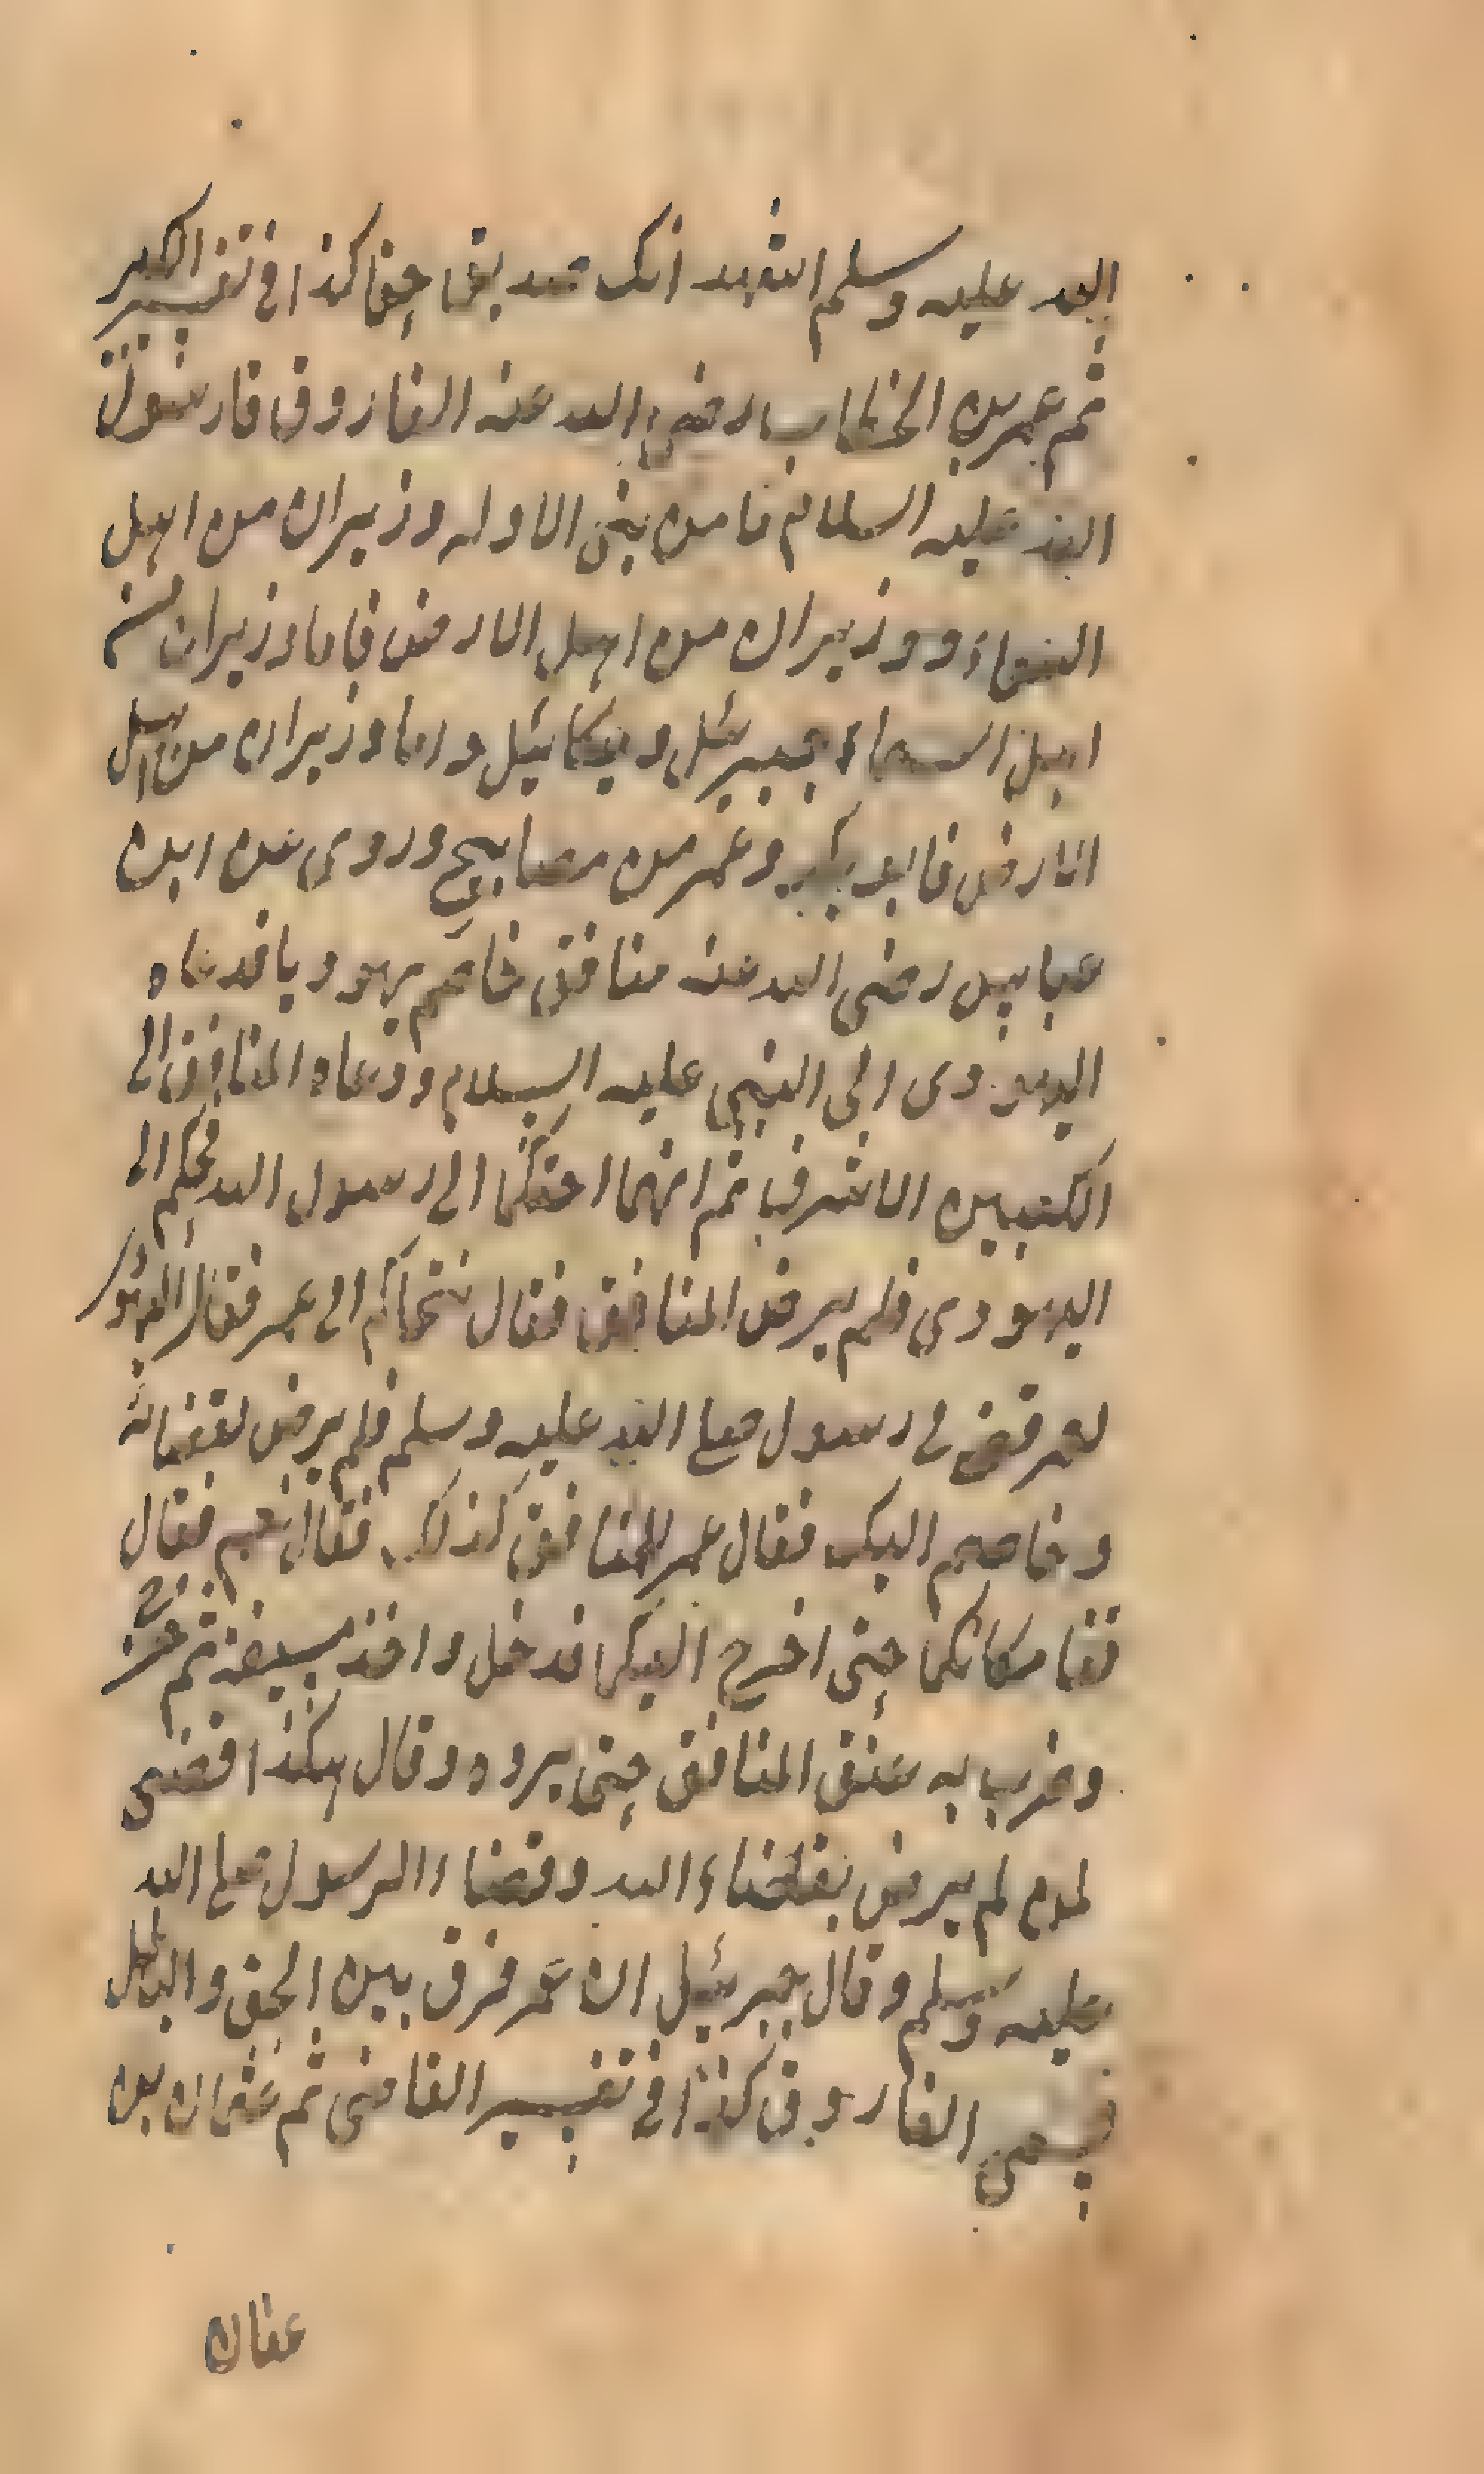 الله عليه وسلم اشهد انك صديق حقا كذا في تفسير الكبير
ثم عمر بن الخطاب رضي الله عنه الفاروق قال رسول
الله عليه السلام ما من نبي الا وله وزيران من اهل
السماء ووزيران من اهل الارض فاما وزيران من
اهل السماء جبرئيل وميكائيل واما وزيران من اهل
الارض فابو بكر وعمر من مصابيح وروى عن ابن
عباس رضي الله عنه منافق خاصم يهوديا فدعاه
اليهودي الى النبي عليه السلام ودعاه المنافق الى
الكعب بن الاشرف ثم انهما احتكما الى رسول الله فحكم الى
اليهودي فلم يرض المنافق فقال نتحاكم الى عمر فقال اليهود
لعمر قضى لي رسول صلى الله عليه وسلم فلم يرض لقضائه
وخاصم اليك فقال عمر للمنافق كذلك فقال نعم فقال
قفا مكانكما حتى اخرج اليكما فدخل واخذ سيفه ثم خرج
وضرب به عنق المنافق حتى برد وقال هكذا اقضي
لمن لم يرض بقضاء الله وقضاء الرسول صلى الله
عليه وسلم وقال جبرئيل ان عمر فرق بين الحق والباطل
فسمي الفاروق كذا في تفسير القاضي ثم عثمان بن
عفان